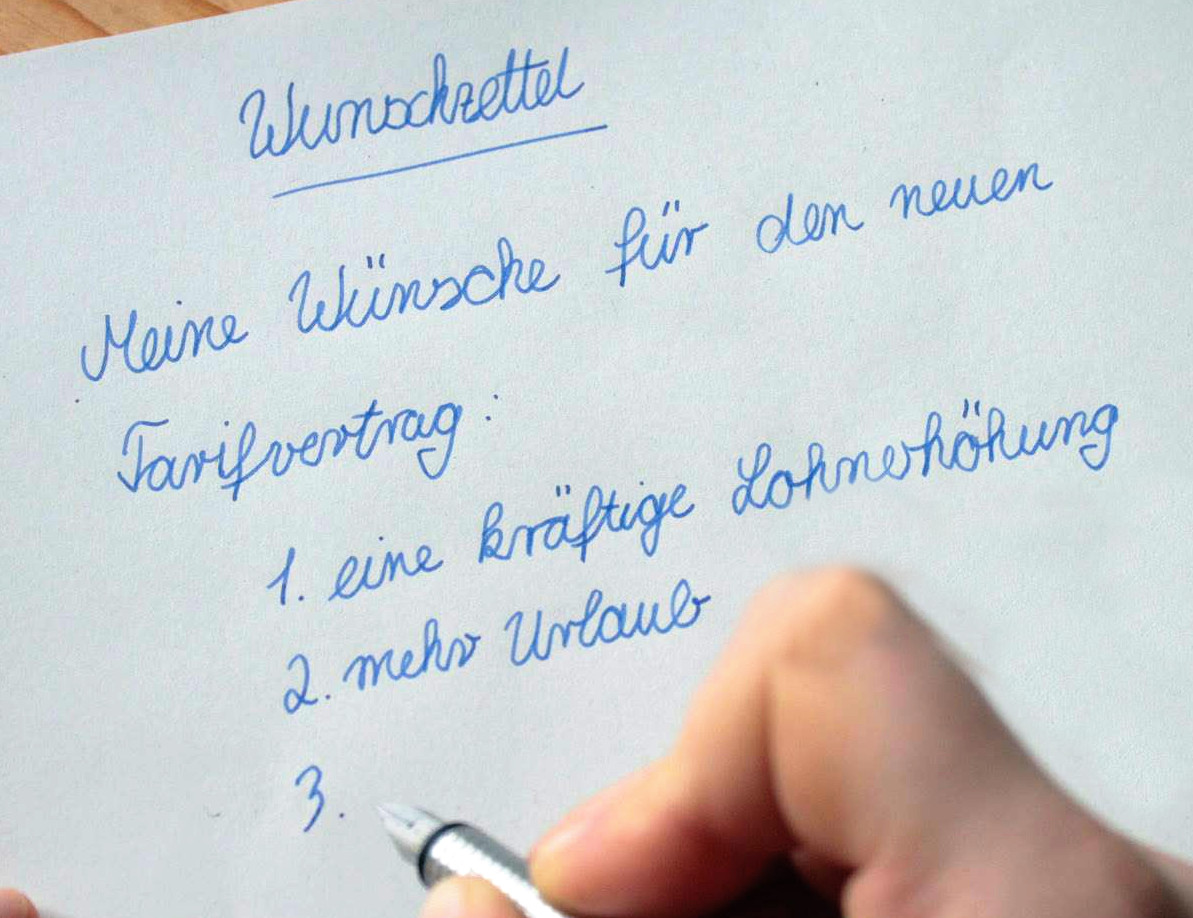 Wunschzettel
Meine Wünsche für den neuen
Tarifvertrag:
1. eine kräftige Lohnerhöhung
2. mehr Urlaub
3.